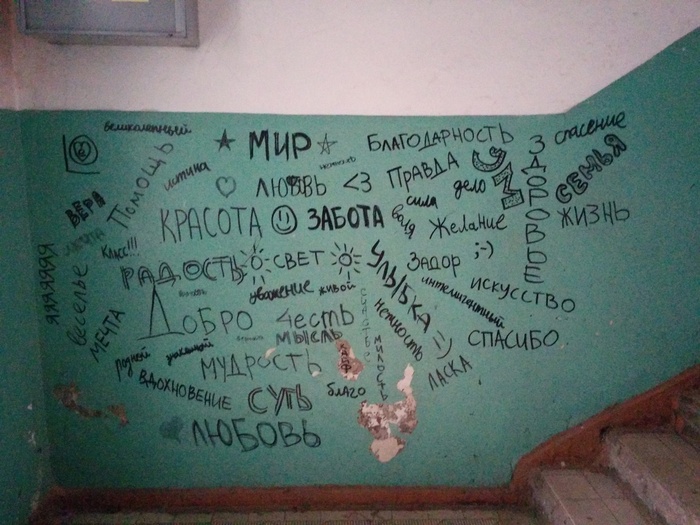 великолепный
МИР
БЛАГОДАРНОСТЬ
спасение
Помощь
истина
ЛЮБОВЬ <3
ПРАВДА
сила
дело
ЗДОРОВЬЕ
СЕМЬЯ
ВЕРА
КРАСОТА
ЗАБОТА
воля
Желание
ЖИЗНЬ
КЛАСС!!!
ЯЯЯЯЯЯЯ
веселье
РАДОСТЬ
СВЕТ
УЛЫБКА =)
ЗАДОР ;-)
уважение
живой
интелигентный
искусство
МЕЧТА
ДОБРО
Честь
нежность
СПАСИБО
родной
МЫСЛЬ
МУДРОСТЬ
МИЛОСТЬ
ЛАСКА
ВДОХНОВЕНИЕ
СУТЬ
благо
ЛЮБОВЬ